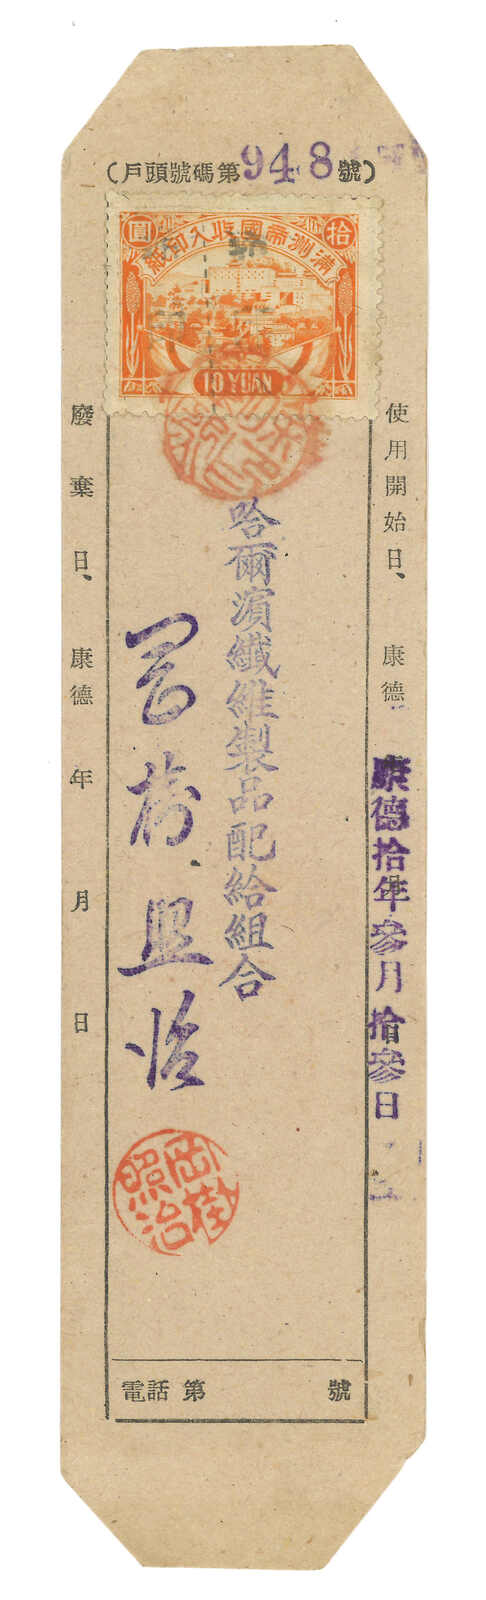 (戶頭號碼第948號)
滿洲帝國收入印紙
拾
圓
10 YUAN
使用開始日、康德
康德拾年參月拾參日
哈爾濱纖維製品配給組合
岡 照治
岡 照治
廢棄日、康德 年 月 日
電話 第 號